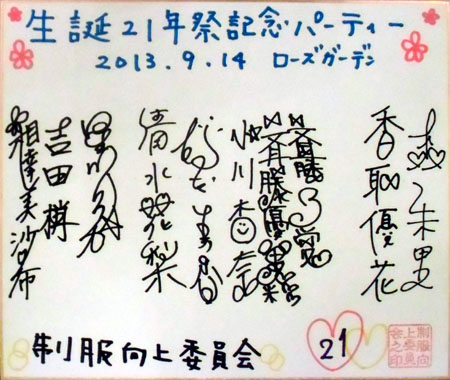 生誕21年祭記念パーティー
2013.9.14 ローズガーデン
香取優花
斉藤乃愛
斉藤優里彩
小川杏奈
清水花梨
吉田梢
美沙布
制服向上委員会
21
制服向
上委員
会之印